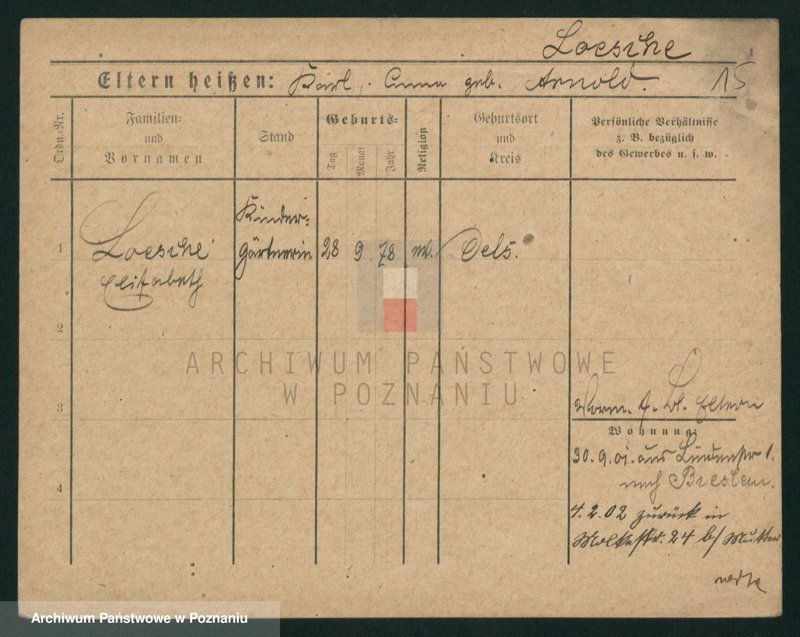 Loesche
Eltern heißen: Karl, Anna geb. Arnold. 15
Ordn.-Nr.
Familien-
und
Vornamen
Stand
Geburts-
Tag
Monat
Jahr
Religion
Geburtsort
und
Kreis
Persönliche Verhältnisse
z. B. bezüglich
des Gewerbes u. s. w.
1
Loesche
Elisabeth
Kinder-
gärtnerin
28 9 78 ev. Oels.
2
ARCHIWUM PAŃSTWOWE
W POZNANIU
3
Eltern
Wohnung:
30.9.01. aus Lindenstr 1.
nach Breslau.
4
4.2.02 zurück in
Moltkestr. 24 b/ Mutter
Archiwum Państwowe w Poznaniu